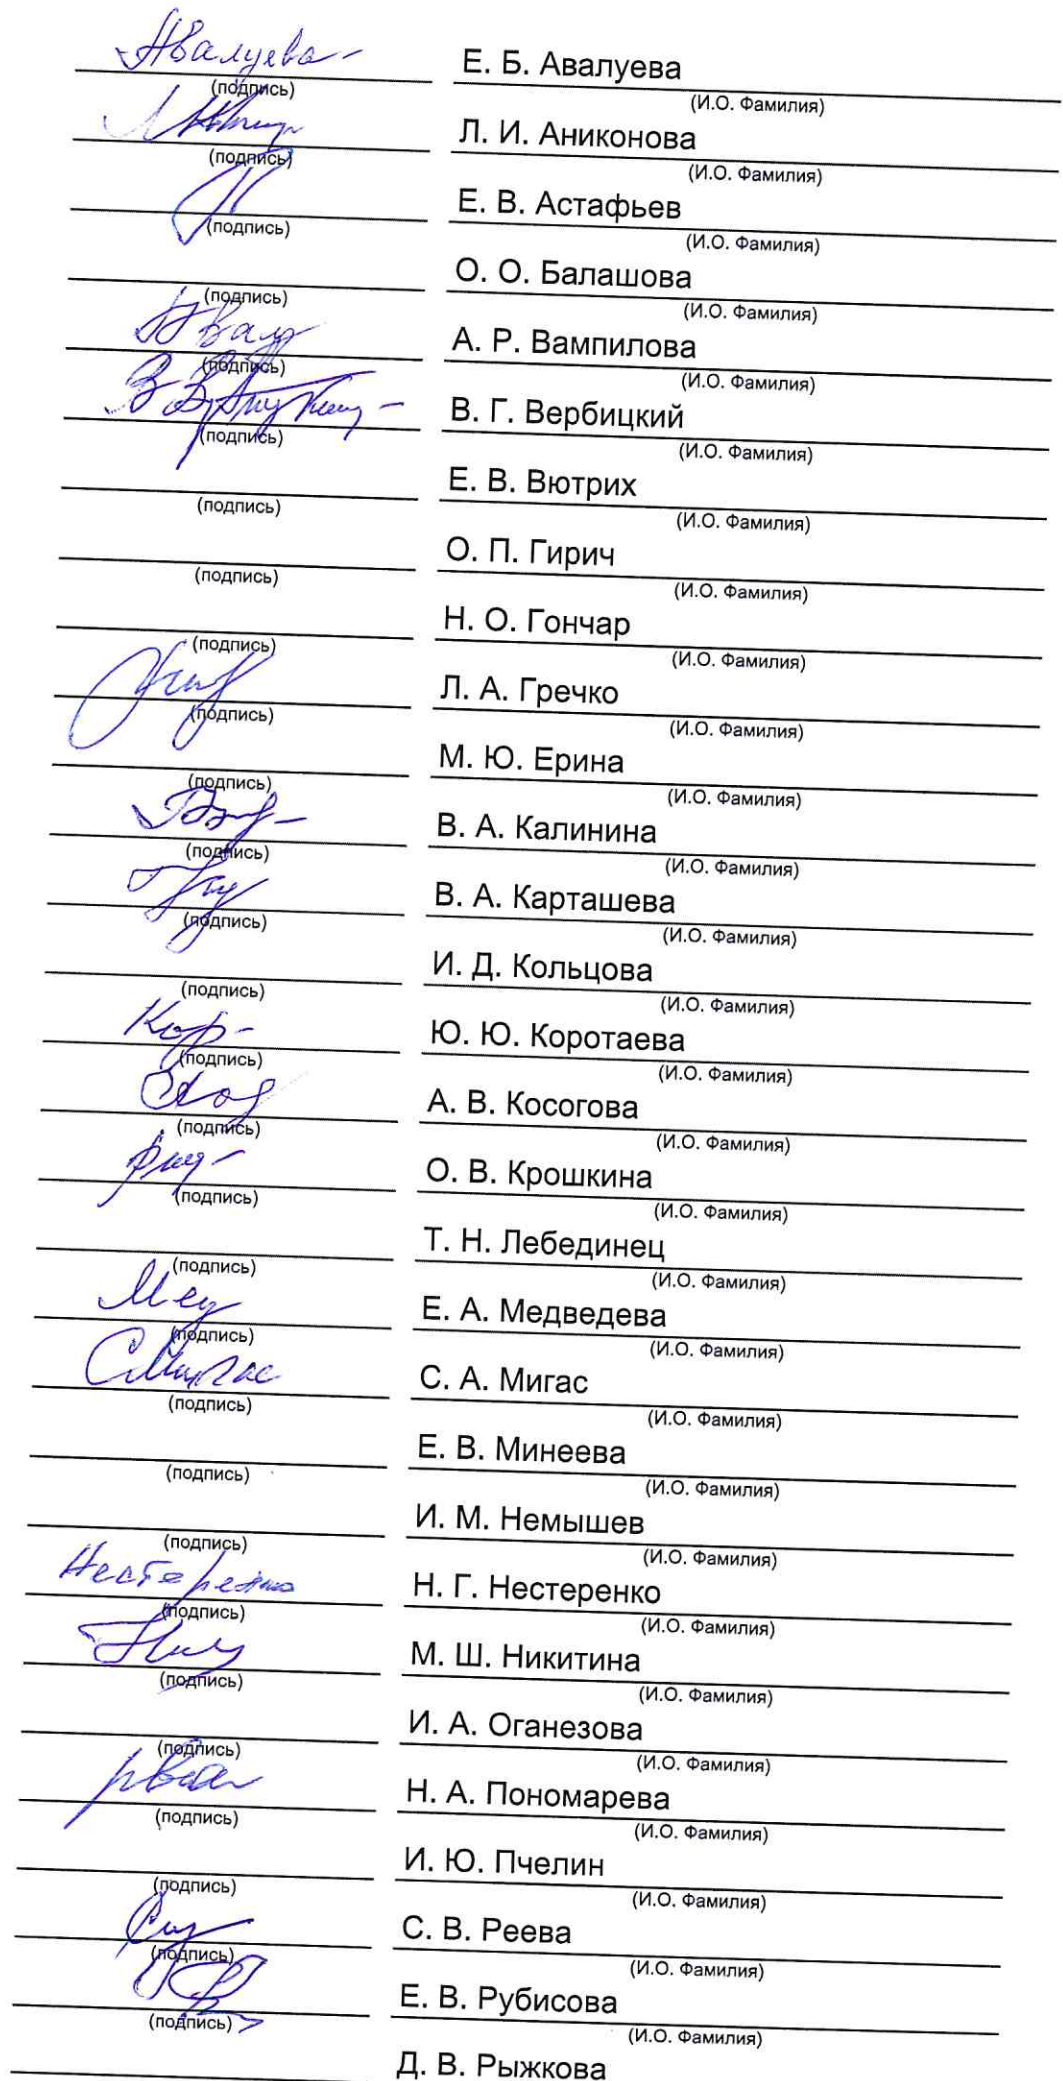 Авалуева
Е. Б. Авалуева
(подпись) (И.О. Фамилия)
Л. И. Аниконова
(подпись) (И.О. Фамилия)
Е. В. Астафьев
(подпись) (И.О. Фамилия)
О. О. Балашова
(подпись) (И.О. Фамилия)
А. Р. Вампилова
(подпись) (И.О. Фамилия)
В. Г. Вербицкий
(подпись) (И.О. Фамилия)
Е. В. Вютрих
(подпись) (И.О. Фамилия)
О. П. Гирич
(подпись) (И.О. Фамилия)
Н. О. Гончар
(подпись) (И.О. Фамилия)
Л. А. Гречко
(подпись) (И.О. Фамилия)
М. Ю. Ерина
(подпись) (И.О. Фамилия)
В. А. Калинина
(подпись) (И.О. Фамилия)
В. А. Карташева
(подпись) (И.О. Фамилия)
И. Д. Кольцова
(подпись) (И.О. Фамилия)
Кор-
Ю. Ю. Коротаева
(подпись) (И.О. Фамилия)
А. В. Косогова
(подпись) (И.О. Фамилия)
О. В. Крошкина
(подпись) (И.О. Фамилия)
Т. Н. Лебединец
(подпись) (И.О. Фамилия)
Е. А. Медведева
(подпись) (И.О. Фамилия)
СМигас
С. А. Мигас
(подпись) (И.О. Фамилия)
Е. В. Минеева
(подпись) (И.О. Фамилия)
И. М. Немышев
(подпись) (И.О. Фамилия)
Нестеренко
Н. Г. Нестеренко
(подпись) (И.О. Фамилия)
М. Ш. Никитина
(подпись) (И.О. Фамилия)
И. А. Оганезова
(подпись) (И.О. Фамилия)
Н. А. Пономарева
(подпись) (И.О. Фамилия)
И. Ю. Пчелин
(подпись) (И.О. Фамилия)
С. В. Реева
(подпись) (И.О. Фамилия)
Е. В. Рубисова
(подпись) (И.О. Фамилия)
Д. В. Рыжкова